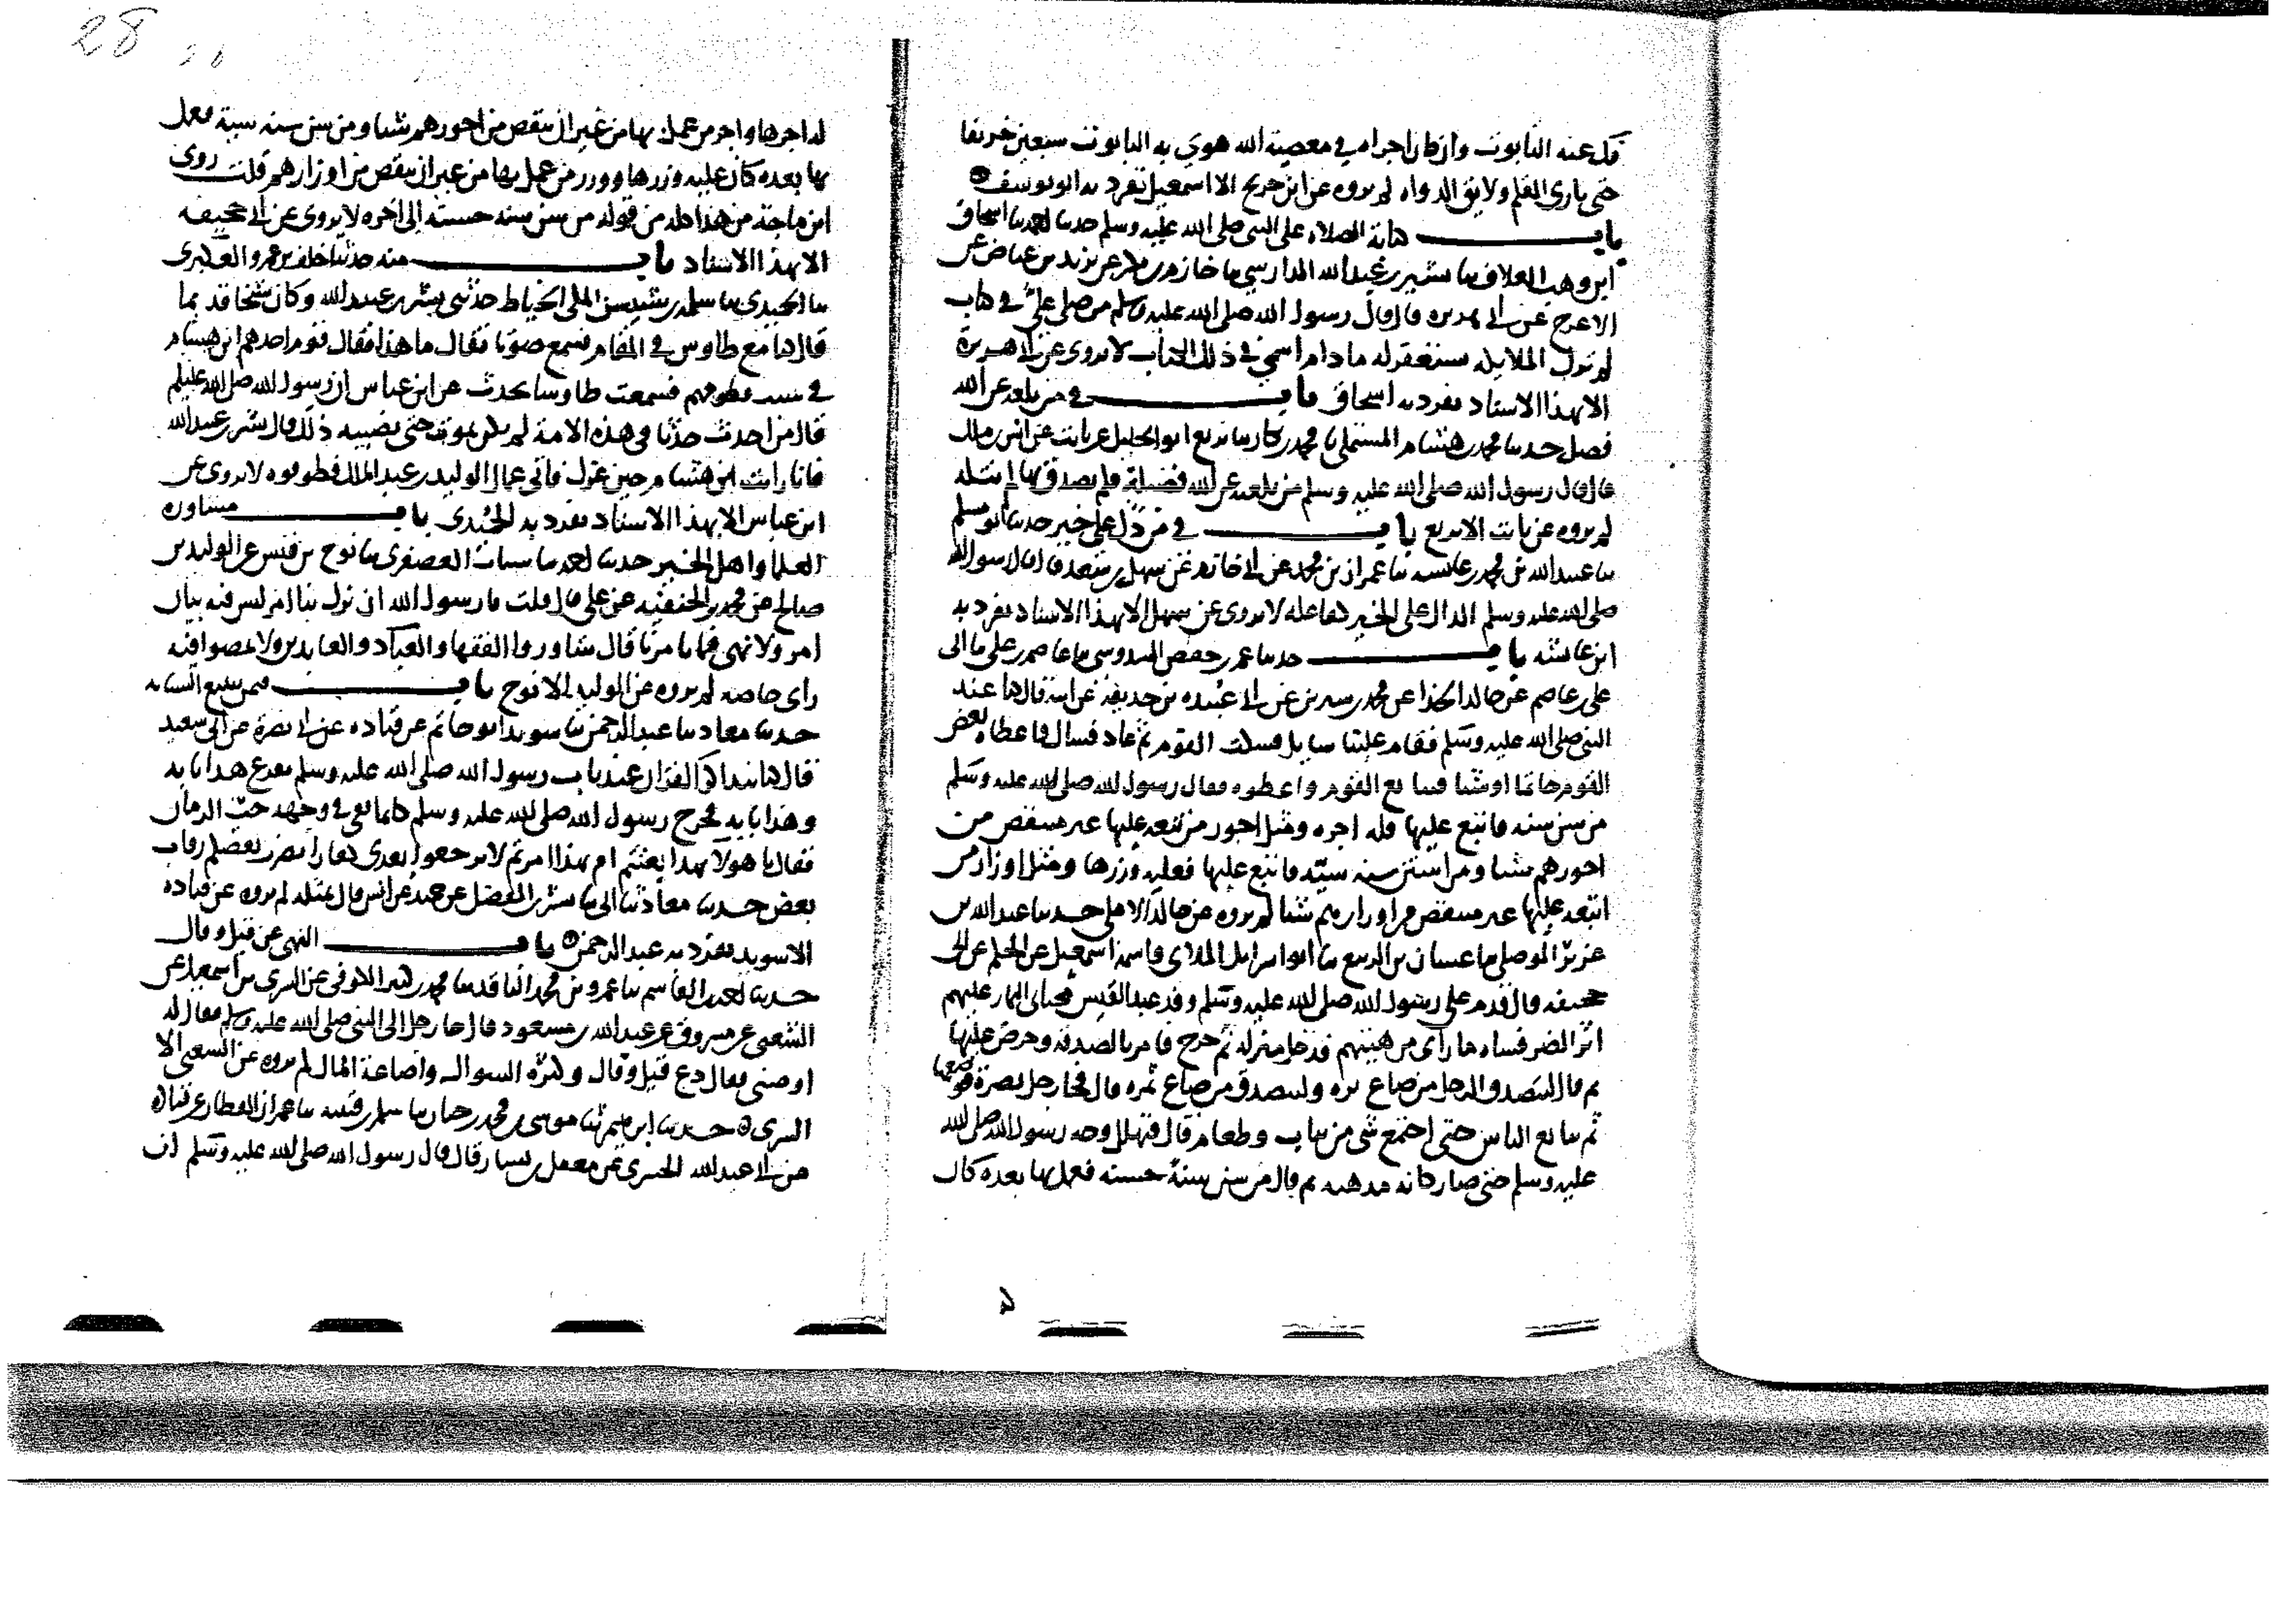 28
فك عنه التابوت وان كان اجرا من في معصية الله هوى به التابوت سبعين خريفا
حتى باري القلم ولايق الدواه لم يروه عن ابن جريج الا اسمعيل تفرد به ابو يوسف
باب كتابة الصلاه على النبي صلى الله عليه وسلم حدثنا احمد ثنا اسحاق
ابن وهب العلاف ثنا بشير بن عبيد الله الدارسي ثنا خازم بن بكر عن يزيد بن عياض عن
الاعرج عن ابي هريره قال قال رسول الله صلى الله عليه وسلم من صلى علي في كتاب
لم تزل الملايكه تستغفر له ما دام اسمي في ذلك الكتاب لا يروى عن ابي هريرة
الا بهذا الاسناد تفرد به اسحاق باب في من بلغه عن الله
فصل حدثنا محمد بن هشام المستملي ثنا محمد بن بكار ثنا بزيع ابو الخليل عن ثابت عن انس بن ملك
قال قال رسول الله صلى الله عليه وسلم من بلغه عن الله فضيلة فلم يصدق بها لم ينله
لم يروه عن ثابت الا بزيع باب في من دل على خير حدثنا ابو مسلم
ثنا عبيد الله بن محمد بن عائشه ثنا عمران بن محمد عن ابي حازم عن سهل بن سعد قال قال رسول الله
صلى الله عليه وسلم الدال على الخير كفاعله لا يروى عن سهل الا بهذا الاسناد تفرد به
ابن عائشه باب حدثنا عمر بن حفص السدوسي ثنا عاصم بن علي ثنا ابي
علي بن عاصم عن خالد الحذا عن محمد بن سيرين عن ابي عبيده بن حذيفة عن ابيه قال كنا عند
النبي صلى الله عليه وسلم فقام علينا سايل فسكت القوم ثم عاد فسال فاعطاه بعض
القوم خاتما او شيا فتتابع القوم واعطوه فقال رسول الله صلى الله عليه وسلم
من سن سنه فاتبع عليها فله اجره ومثل اجور من تبعه عليها غير منتقص من
اجورهم شيا ومن استن سنه سيئه فاتبع عليها فعليه وزرها ومثل اوزار من
اتبعه عليها غير منتقص من اوزارهم شيا لم يروه عن خالد الا علي حدثنا عبد الله بن
عزيز الموصلي ثنا غسان بن الربيع ثنا ابو اسرايل الملائ واسمه اسمعيل عن الحكم عن ابي
جحيفه قال قدم على رسول الله صلى الله عليه وسلم وفد عبد القيس مجتابي النمار عليهم
اثر الضر فساه ما راى من هيئتهم فدخل منزله ثم خرج فامر بالصدقه وحرض عليها
ثم قال ليتصدق الرجل من صاع بره وليتصدق من صاع تمره قال فجا رجل بصرة فوضعها
ثم تتابع الناس حتى اجتمع شي من ثياب وطعام قال فتهلل وجه رسول الله صلى الله
عليه وسلم حتى صار كانه مدهنه ثم قال من سن سنة حسنه فعمل بها بعده كان
له اجرها واجر من عمل بها من غير ان ينقص من اجورهم شيا ومن سن سنه سيئة فعمل
بها بعده كان عليه وزرها ووزر من عمل بها من غير ان ينقص من اوزارهم قلت روى
ابن ماجة من هذا كله من قوله من سن سنه حسنه الى اخره لا يروى عن ابي جحيفه
الا بهذا الاسناد باب منه حدثنا خلف بن عمرو العكبري
ثنا الحميدي ثنا سلمه بن سيسن المكي الخياط حدثني بشر بن عبيد الله وكان شيخا قديما
قال كنا مع طاوس في المقام فسمع صوتا فقال ما هذا فقال قوم اخذهم ابن هشام
في سبب فطوقهم فسمعت طاوسا يحدث عن ابن عباس ان رسول الله صلى الله عليه وسلم
قال من احدث حدثا في هذه الامة لم يكن يموت حتى يصيبه ذلك قال بشر بن عبيد الله
فانا رايت ابن هشام حين عزل فاتى عمال الوليد بن عبد الملك فطوقوه لا يروى عن
ابن عباس الا بهذا الاسناد تفرد به الحميدي باب مشاورة
العلما واهل الخير حدثنا احمد ثنا شباب العصفري ثنا نوح بن قيس عن الوليد بن
صالح عن محمد بن الحنفيه عن علي قال قلت يا رسول الله ان نزل بنا امر ليس فيه بيان
امر ولا نهي فما تامرنا قال شاوروا الفقها والعباد والعابدين ولا تمضوا فيه
راى خاصه لم يروه عن الوليد الا نوح باب فيمن يتبع المتشابه
حدثنا معاذ ثنا عبد الرحمن ثنا سويد ابو حاتم عن قتاده عن ابي نضرة عن ابي سعيد
قال كنا نتذاكر القران عند باب رسول الله صلى الله عليه وسلم ينزع هذا بايه
وهذا بايه فخرج رسول الله صلى الله عليه وسلم كانما فقئ في وجهه حب الرمان
فقال يا هولا بهذا بعثتم ام بهذا امرتم لا ترجعوا بعدي كفارا يضرب بعضكم رقاب
بعض حدثنا معاذ ثنا ابي ثنا بشر بن المفضل عن حميد عن انس قال بمثله لم يروه عن قتاده
الا سويد تفرد به عبد الرحمن باب النهي عن قيل وقال
حدثنا احمد بن القاسم ثنا عمرو بن محمد الناقد ثنا محمد بن كثير الكوفي عن السري بن اسمعيل عن
الشعبي عن مسروق عن عبد الله بن مسعود قال جا رجل الى النبي صلى الله عليه وسلم فقال له
اوصني فقال دع قيل وقال وكثرة السوال واضاعة المال لم يروه عن الشعبي الا
السري حدثنا ابراهيم ثنا موسى بن محمد بن حيان ثنا سلم بن قتيبه ثنا عمران القطان عن قتاده
عن ابي عبد الله الجسري عن معقل بن يسار قال قال رسول الله صلى الله عليه وسلم ان